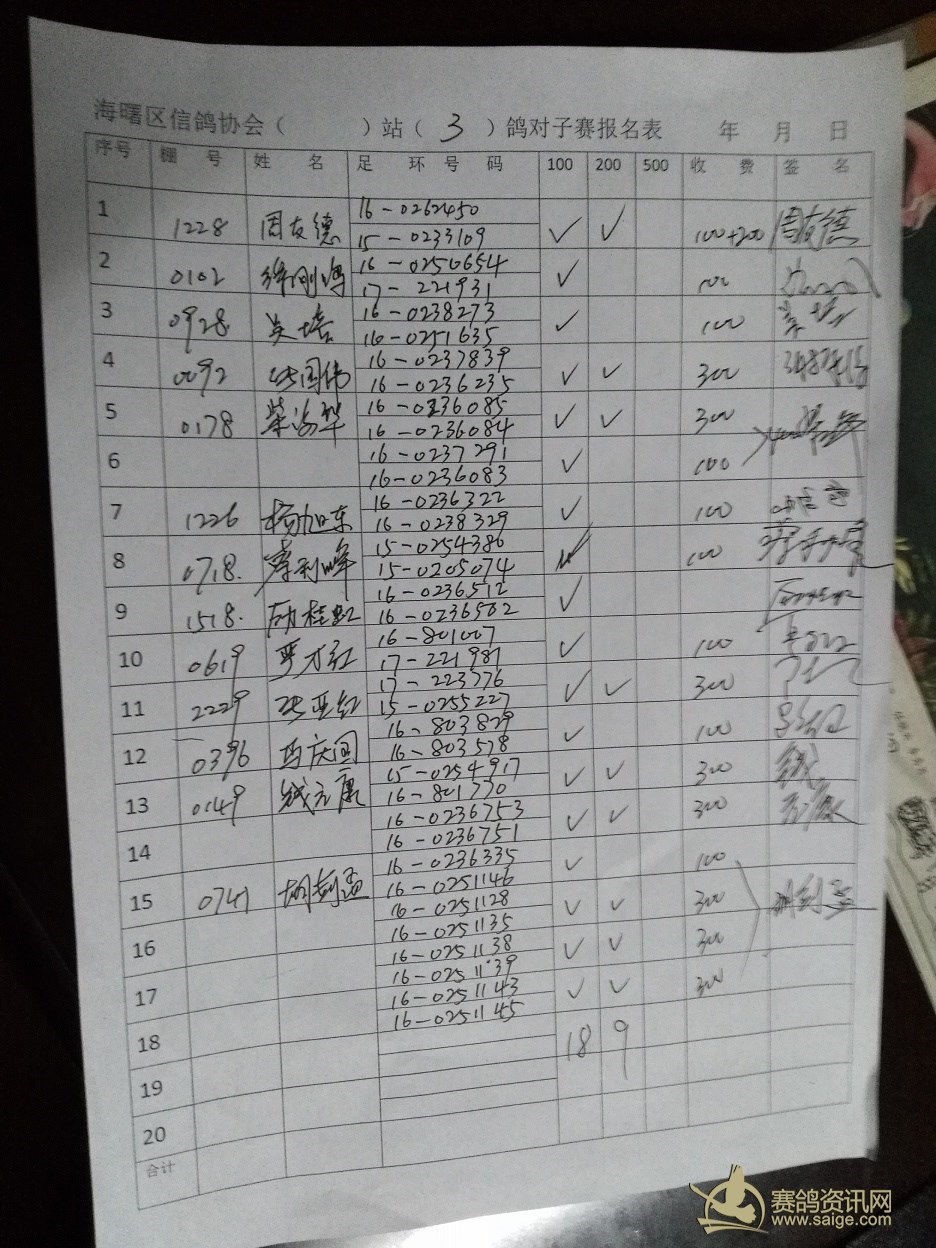 海曙区信鸽协会（ ）站（ 3 ）鸽对子赛报名表 年 月 日
序号 棚 号 姓 名 足 环 号 码 100 200 500 收 费 签 名
1 1228 周友德 16-0262450 ✓ ✓ 100+200 周友德
15-0233109
2 0102 16-0250654 ✓ 100
17-221931
3 0928 16-0238273 ✓ 100
16-0251635
4 0092 16-0237839 ✓ ✓ 300
16-0236235
5 0178 16-0236085 ✓ ✓ 300
16-0236084
6 16-0237291 ✓ 100
16-0236083
7 1226 杨旭东 16-0236322 ✓ 100
16-0238329
8 0718. 15-0254386 ✓ 100
15-0205074
9 1518. 16-0236512 ✓
16-0236502
10 0619 严才红 16-801007 ✓ 100
17-221981
11 2229 张亚红 17-223776 ✓ ✓ 300
15-0255227
12 0396 马庆国 16-803829 ✓ 100
16-803578
13 0149 钱元康 15-0254917 ✓ ✓ 300
16-801770
16-0236753 ✓ ✓ 300
14 16-0236751
16-0236335 ✓ 100
15 0741 16-0251146
16-0251128 ✓ ✓ 300
16 16-0251135
16-0251138 ✓ ✓ 300
17 16-0251139
16-0251143 ✓ ✓ 300
18 16-0251145
18 9
19
20
合计
赛鸽资讯网
www.saige.com